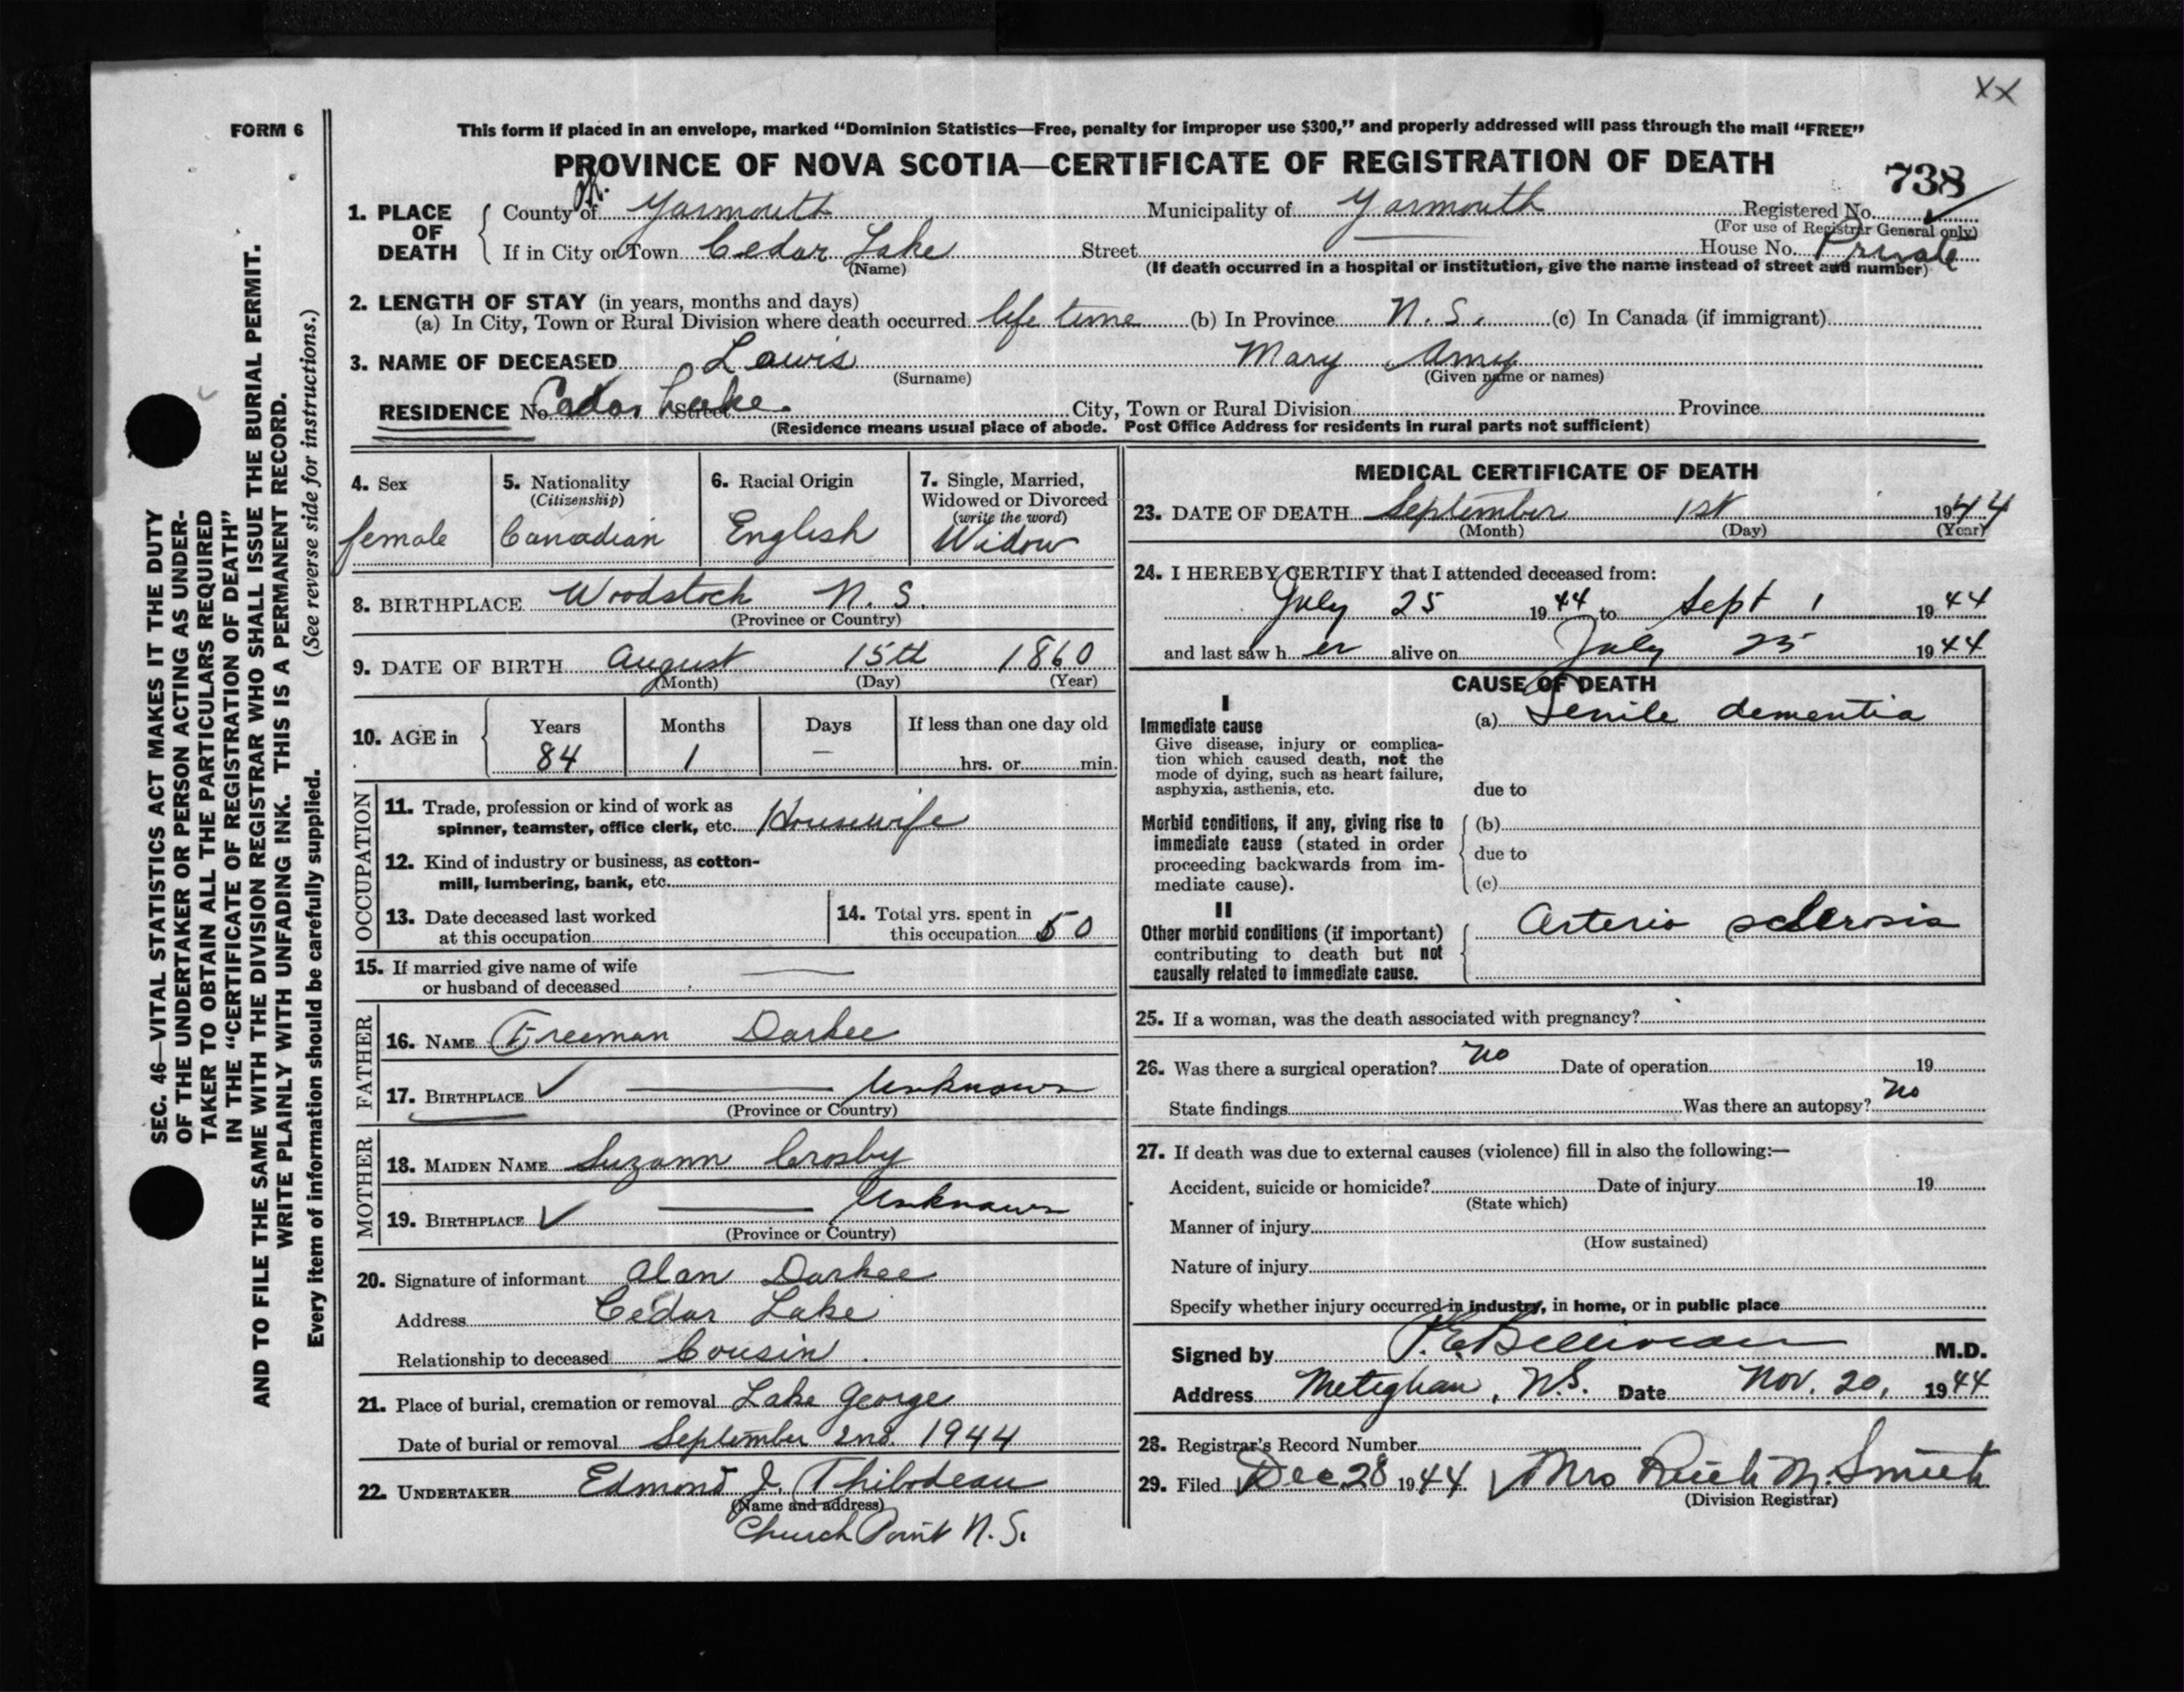 XX
FORM 6
This form if placed in an envelope, marked "Dominion Statistics—Free, penalty for improper use $300," and properly addressed will pass through the mail "FREE"
PROVINCE OF NOVA SCOTIA—CERTIFICATE OF REGISTRATION OF DEATH
738
1. PLACE OF DEATH
County of Yarmouth Municipality of Yarmouth Registered No.
(For use of Registrar General only)
If in City or Town Cedar Lake Street House No. Private
(Name) (If death occurred in a hospital or institution, give the name instead of street and number)
2. LENGTH OF STAY (in years, months and days)
(a) In City, Town or Rural Division where death occurred life time (b) In Province N.S. (c) In Canada (if immigrant)
3. NAME OF DECEASED Lewis Mary Amy
(Surname) (Given name or names)
RESIDENCE No. Cedar Lake. Street City, Town or Rural Division Province
(Residence means usual place of abode. Post Office Address for residents in rural parts not sufficient)
4. Sex
female
5. Nationality
(Citizenship)
Canadian
6. Racial Origin
English
7. Single, Married,
Widowed or Divorced
(write the word)
Widow
8. BIRTHPLACE Woodstock N.S.
(Province or Country)
9. DATE OF BIRTH August 15th 1860
(Month) (Day) (Year)
10. AGE in
Years Months Days If less than one day old
84 1 — hrs. or min.
OCCUPATION
11. Trade, profession or kind of work as
spinner, teamster, office clerk, etc. Housewife
12. Kind of industry or business, as cotton-
mill, lumbering, bank, etc.
13. Date deceased last worked
at this occupation
14. Total yrs. spent in
this occupation 50
15. If married give name of wife
or husband of deceased —
FATHER
16. NAME Freeman Darkee
17. BIRTHPLACE ✓ — Unknown
(Province or Country)
MOTHER
18. MAIDEN NAME Suzann Crosby
19. BIRTHPLACE ✓ — Unknown
(Province or Country)
20. Signature of informant Alan Darkee
Address Cedar Lake
Relationship to deceased Cousin.
21. Place of burial, cremation or removal Lake George
Date of burial or removal September 2nd. 1944
22. UNDERTAKER Edmond J. Thibodeau
(Name and address)
Church Point N.S.
MEDICAL CERTIFICATE OF DEATH
23. DATE OF DEATH September 1st 1944
(Month) (Day) (Year)
24. I HEREBY CERTIFY that I attended deceased from:
July 25 1944 to Sept 1 1944
and last saw her alive on July 25 1944
CAUSE OF DEATH
I
Immediate cause
Give disease, injury or complica-
tion which caused death, not the
mode of dying, such as heart failure,
asphyxia, asthenia, etc.
(a) Senile dementia
due to
Morbid conditions, if any, giving rise to
immediate cause (stated in order
proceeding backwards from im-
mediate cause).
(b)
due to
(c)
II
Other morbid conditions (if important)
contributing to death but not
causally related to immediate cause.
Arterio sclerosis
25. If a woman, was the death associated with pregnancy?
26. Was there a surgical operation? no Date of operation 19
State findings Was there an autopsy? no
27. If death was due to external causes (violence) fill in also the following:—
Accident, suicide or homicide? Date of injury 19
(State which)
Manner of injury
(How sustained)
Nature of injury
Specify whether injury occurred in industry, in home, or in public place
Signed by P. E. Belliveau M.D.
Address Meteghan, N.S. Date Nov. 20, 1944
28. Registrar's Record Number
29. Filed Dec 28 1944 Mrs M. Smith
(Division Registrar)
SEC. 46—VITAL STATISTICS ACT MAKES IT THE DUTY
OF THE UNDERTAKER OR PERSON ACTING AS UNDER-
TAKER TO OBTAIN ALL THE PARTICULARS REQUIRED
IN THE "CERTIFICATE OF REGISTRATION OF DEATH"
AND TO FILE THE SAME WITH THE DIVISION REGISTRAR WHO SHALL ISSUE THE BURIAL PERMIT.
WRITE PLAINLY WITH UNFADING INK. THIS IS A PERMANENT RECORD.
Every item of information should be carefully supplied. (See reverse side for instructions.)